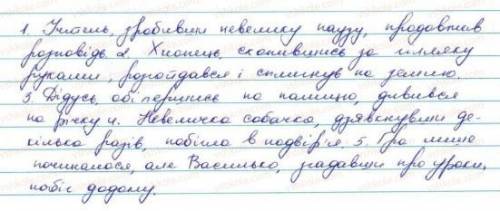 1. Учитель, зробивши невелику паузу, продовжив
розповідь. 2. Хлопець, схопившись за гілляку
руками, розгойдався і сплигнув на землю.
3. Дідусь, обіпершись на палицю, дивився
на річку. 4. Невеличка собачка, дзявкнувши де-
кілька разів, побігла в подвір'я. 5. Гра лише
починалося, але Василько, згадавши про уроки,
побіг додому.